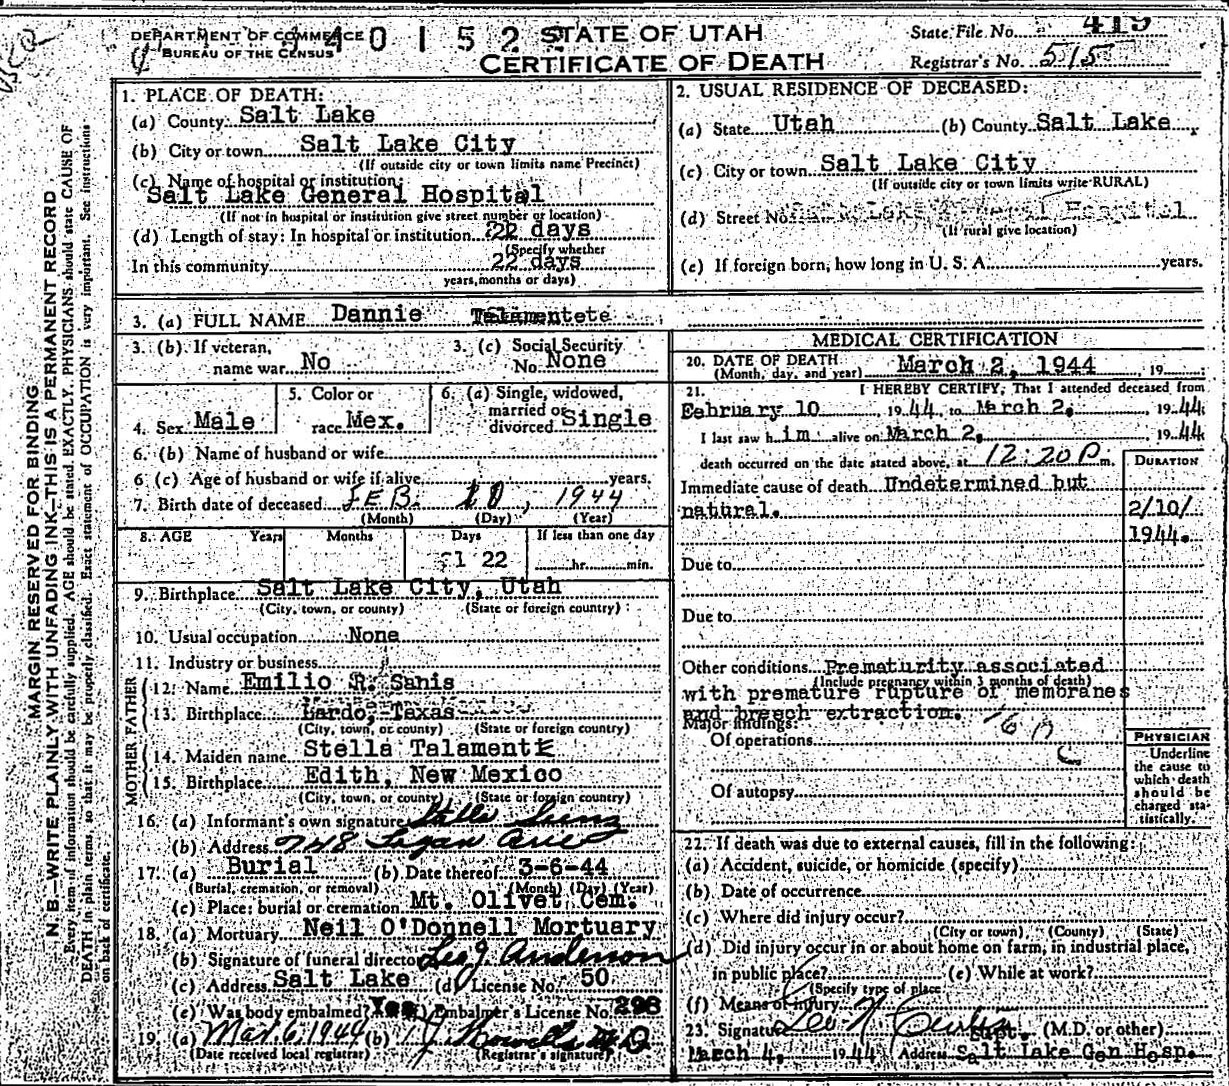 DEPARTMENT OF COMMERCE
BUREAU OF THE CENSUS
STATE OF UTAH
CERTIFICATE OF DEATH
State File No. 419
Registrar's No. 515
MARGIN RESERVED FOR BINDING
N. B.—WRITE PLAINLY WITH UNFADING INK—THIS IS A PERMANENT RECORD
Every item of information should be carefully supplied. AGE should be stated EXACTLY. PHYSICIANS should state CAUSE OF
DEATH in plain terms, so that it may be properly classified. Exact statement of OCCUPATION is very important. See instructions
on back of certificate.
1. PLACE OF DEATH:
(a) County Salt Lake
(b) City or town Salt Lake City
(If outside city or town limits name Precinct)
(c) Name of hospital or institution
Salt Lake General Hospital
(If not in hospital or institution give street number or location)
(d) Length of stay: In hospital or institution 22 days
(Specify whether
In this community 22 days
years, months or days)
2. USUAL RESIDENCE OF DECEASED:
(a) State Utah (b) County Salt Lake
(c) City or town Salt Lake City
(If outside city or town limits write RURAL)
(d) Street No. Hospital
(If rural give location)
(e) If foreign born, how long in U. S. A. years.
3. (a) FULL NAME Dannie
3. (b) If veteran, name war No
3. (c) Social Security No. None
4. Sex Male
5. Color or race Mex.
6. (a) Single, widowed, married or divorced Single
6. (b) Name of husband or wife
6 (c) Age of husband or wife if alive years.
7. Birth date of deceased FEB. 10, 1944
(Month) (Day) (Year)
8. AGE Years Months Days If less than one day
22 hr. min.
9. Birthplace Salt Lake City, Utah
(City, town, or county) (State or foreign country)
10. Usual occupation None
11. Industry or business
FATHER
12. Name Emilio R. Sanis
13. Birthplace Lardo, Texas
(City, town, or county) (State or foreign country)
MOTHER
14. Maiden name Stella Talamente
15. Birthplace Edith, New Mexico
(City, town, or county) (State or foreign country)
16. (a) Informant's own signature Stella
(b) Address 748 Ave
17. (a) Burial (b) Date thereof 3-6-44
(Burial, cremation, or removal) (Month) (Day) (Year)
(c) Place: burial or cremation Mt. Olivet Cem.
18. (a) Mortuary Neil O'Donnell Mortuary
(b) Signature of funeral director Leo J Anderson
(c) Address Salt Lake (d) License No. 50
(e) Was body embalmed? Yes (f) Embalmer's License No. 298
19. (a) Mar. 6, 1944 (b)
(Date received local registrar) (Registrar's signature)
MEDICAL CERTIFICATION
20. DATE OF DEATH March 2, 1944 , 19
(Month, day, and year)
21. I HEREBY CERTIFY, That I attended deceased from
February 10 , 1944, to March 2, , 1944;
I last saw him alive on March 2, , 1944
death occurred on the date stated above, at 12:20 P m.
DURATION
Immediate cause of death Undetermined but
natural. 2/10/
1944.
Due to
Due to
Other conditions Prematurity associated
(Include pregnancy within 3 months of death)
with premature rupture of membranes
and breech extraction.
Major findings:
Of operations
Of autopsy
PHYSICIAN
Underline
the cause to
which death
should be
charged sta-
tistically.
22. If death was due to external causes, fill in the following:
(a) Accident, suicide, or homicide (specify)
(b) Date of occurrence
(c) Where did injury occur?
(City or town) (County) (State)
(d) Did injury occur in or about home on farm, in industrial place,
in public place? (e) While at work?
(Specify type of place
(f) Means of injury
23. Signature Leo N. (M.D. or other)
March 4, 1944 Address Salt Lake Gen Hosp.